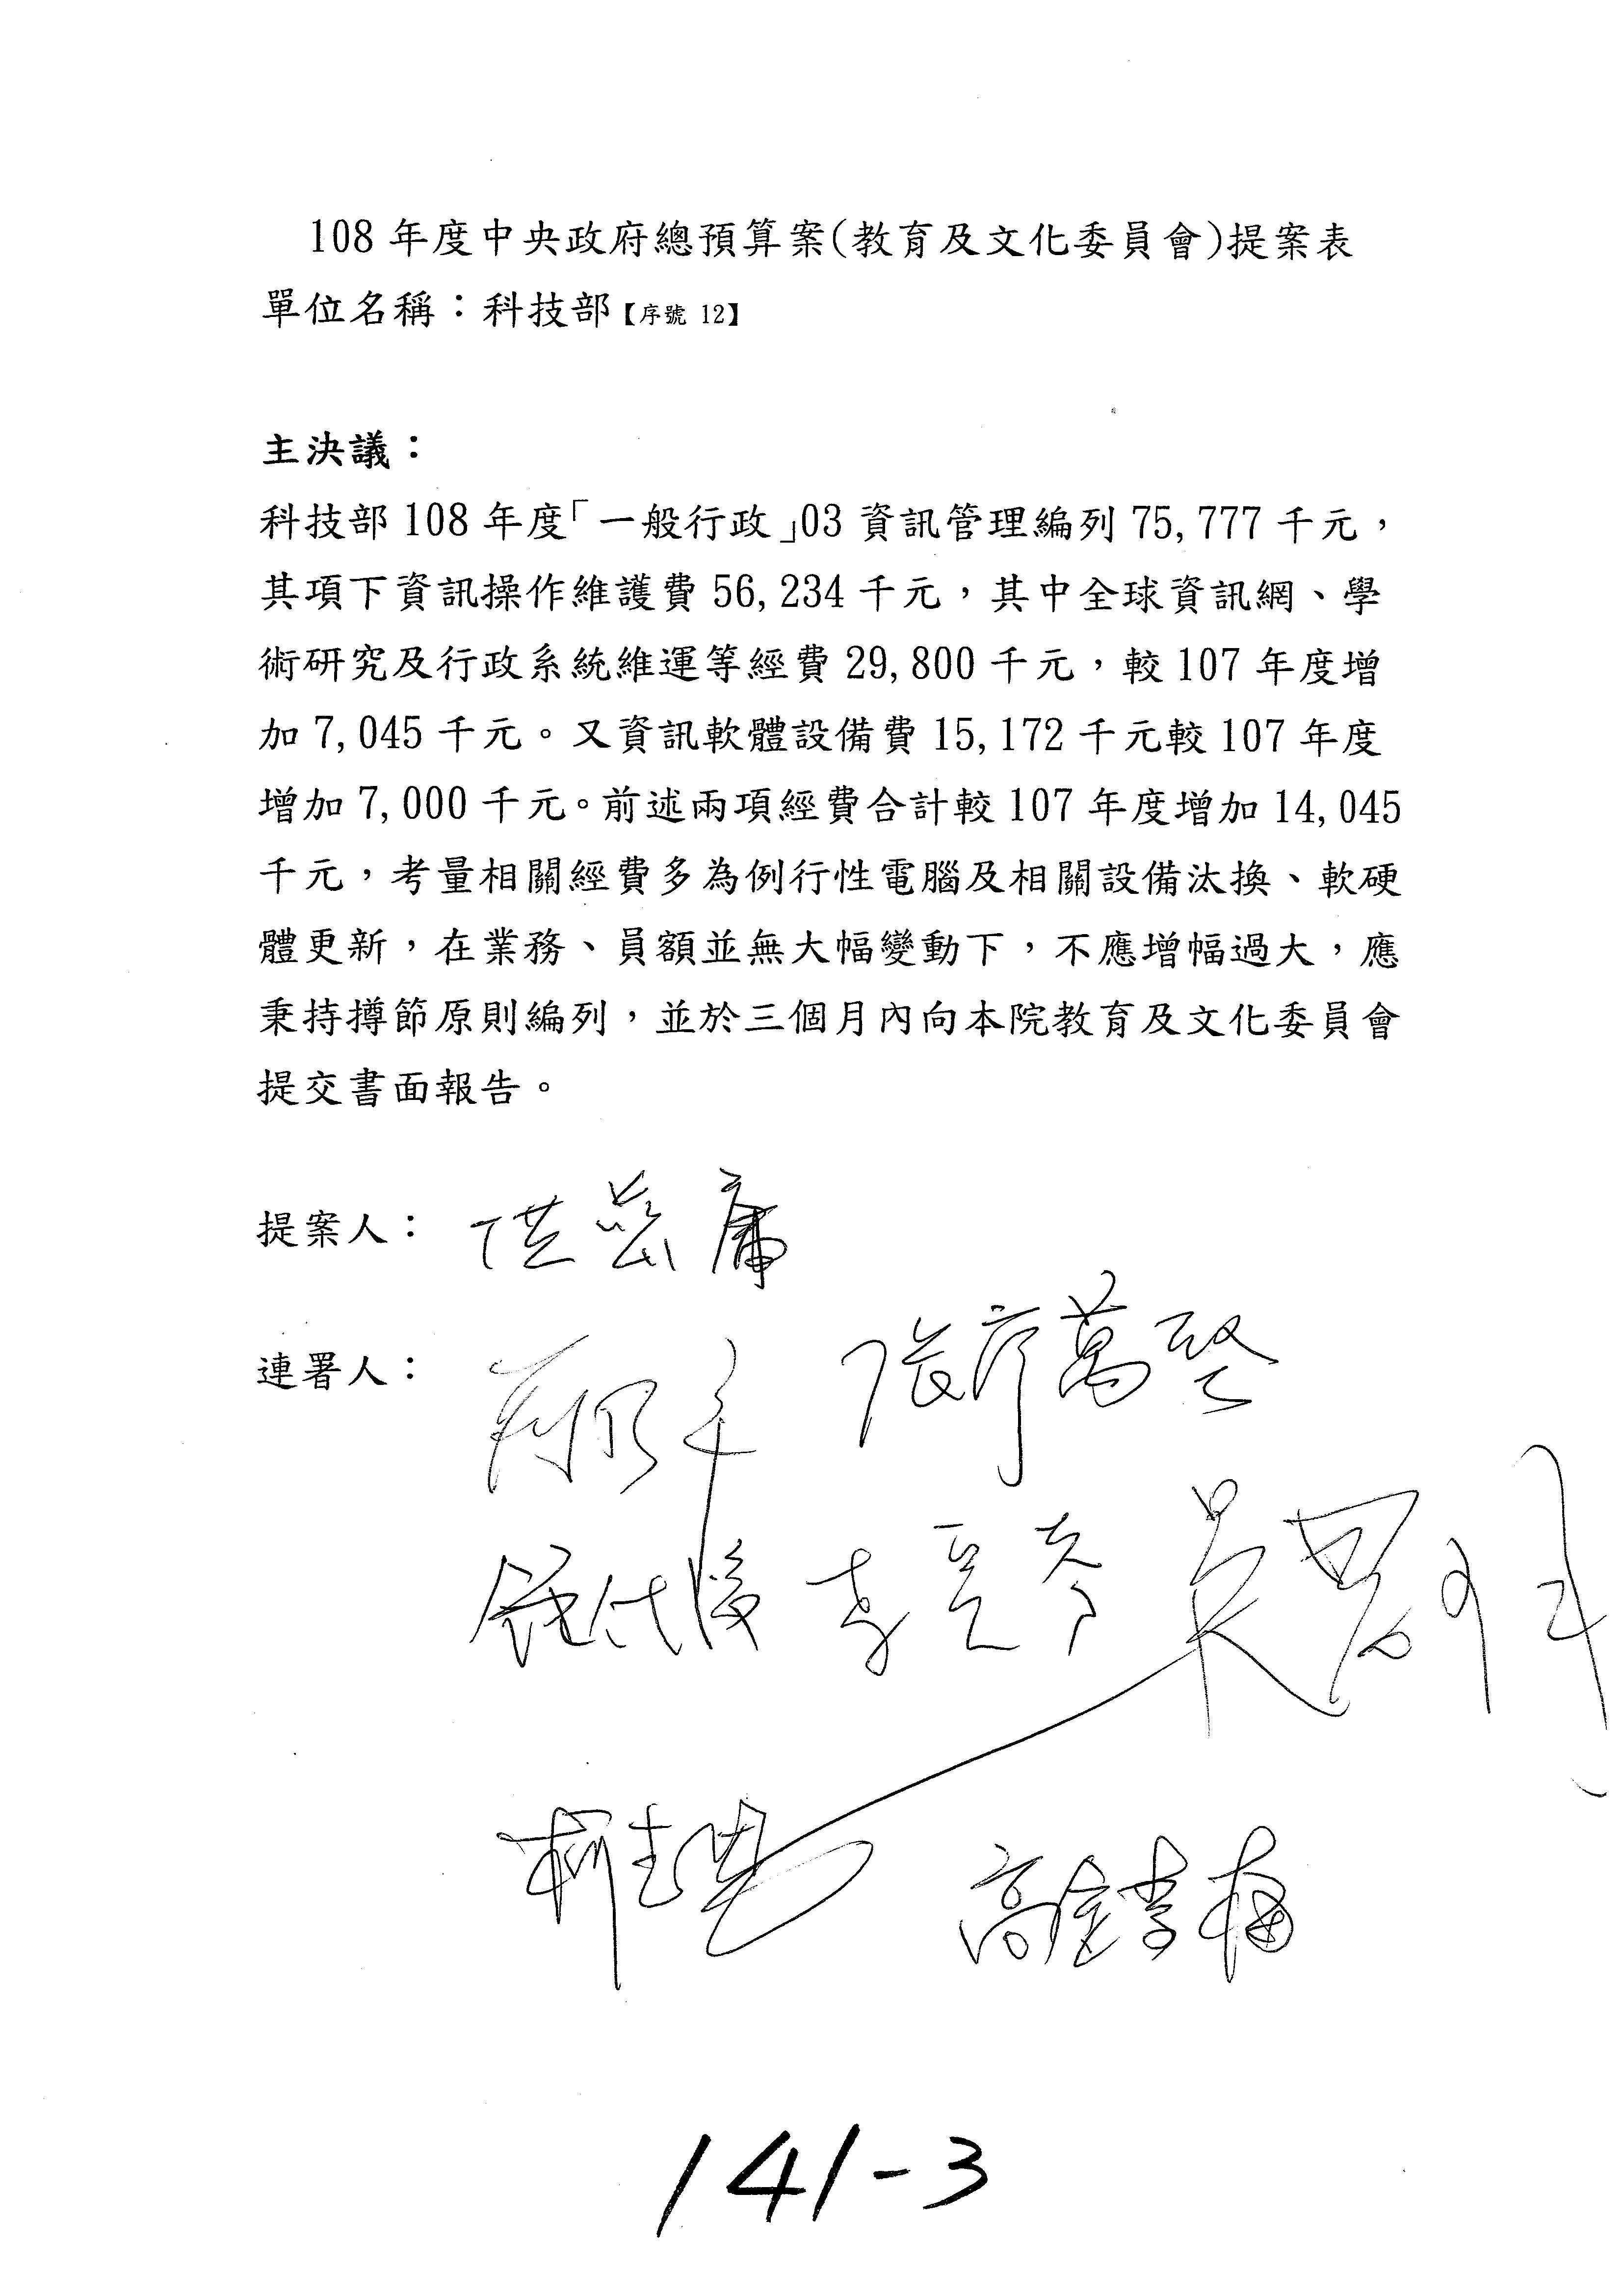 108 年度中央政府總預算案(教育及文化委員會)提案表
單位名稱：科技部【序號 12】
主決議：
科技部 108 年度「一般行政」03 資訊管理編列 75,777 千元，
其項下資訊操作維護費 56,234 千元，其中全球資訊網、學
術研究及行政系統維運等經費 29,800 千元，較 107 年度增
加 7,045 千元。又資訊軟體設備費 15,172 千元較 107 年度
增加 7,000 千元。前述兩項經費合計較 107 年度增加 14,045
千元，考量相關經費多為例行性電腦及相關設備汰換、軟硬
體更新，在業務、員額並無大幅變動下，不應增幅過大，應
秉持撙節原則編列，並於三個月內向本院教育及文化委員會
提交書面報告。
提案人： 洪慈庸
連署人： 張廖萬堅
高金素梅
141-3